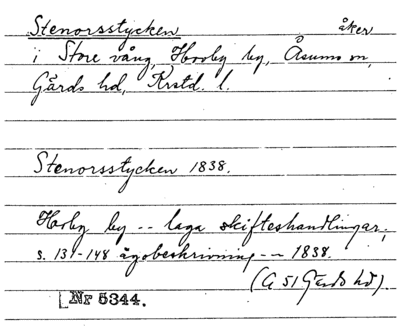 Stenorsstycken åker
i Store vång, Hovby by, Åsums sn,
Gärds hd, Krstd. l.
Stenorsstycken 1838.
Hovby by -- laga skifteshandlingar,
s. 131-148 ägobeskrivning -- 1838.
(G 51 Gärds hd).
Nr 5344.